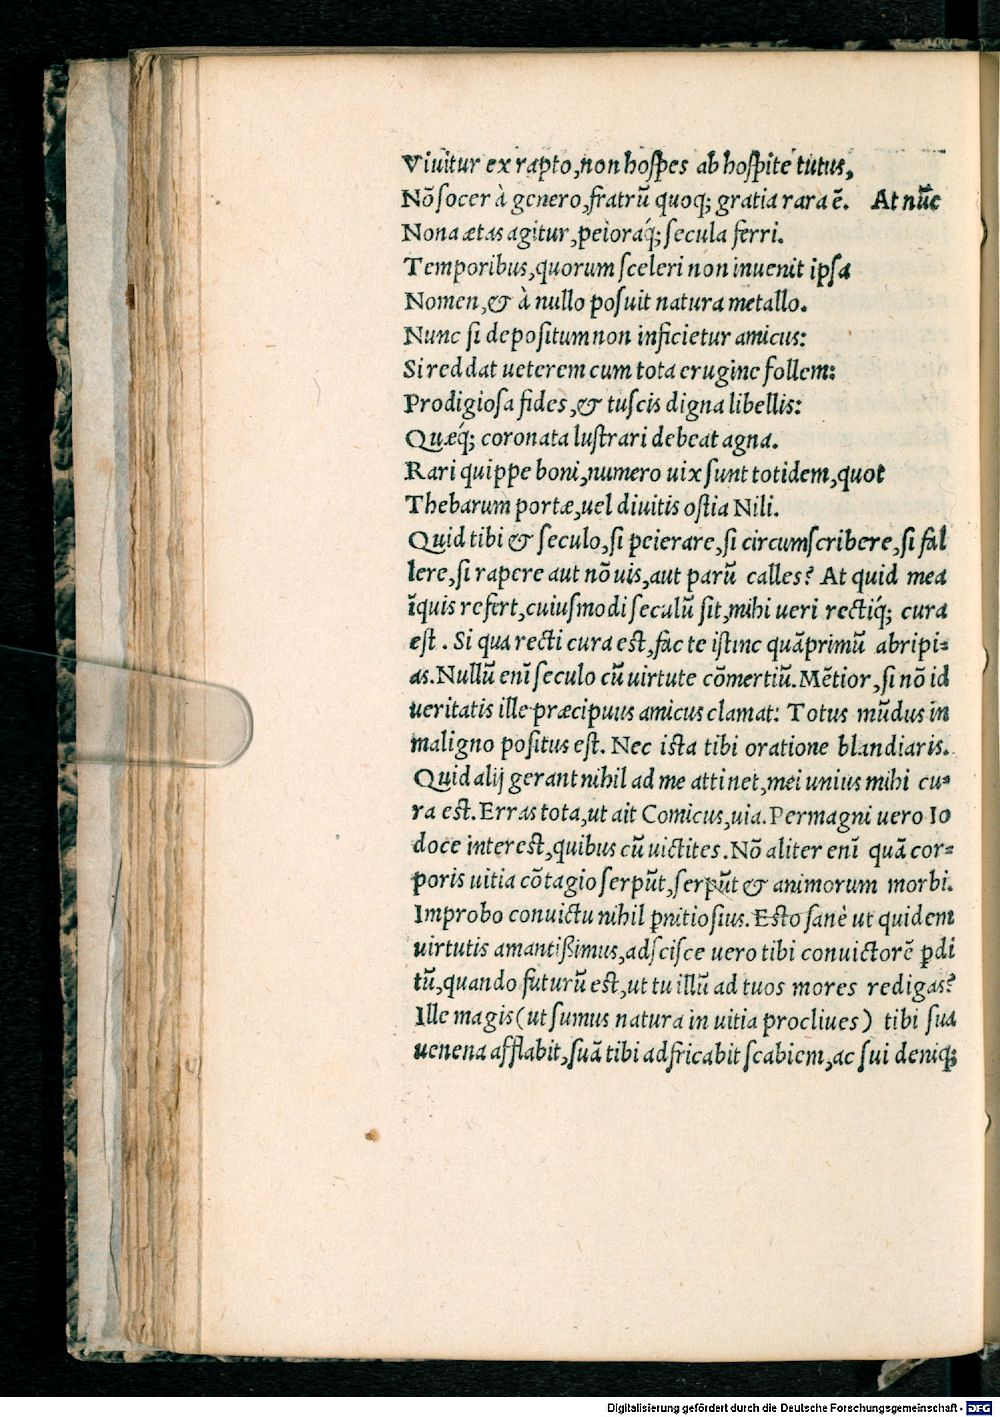 Viuitur ex rapto, non hoſpes ab hoſpite tutus,
Nõ ſocer à genero, fratrũ quoq; gratia rara ẽ. At nũc
Nona ætas agitur, peioraq́; ſecula ferri.
Temporibus, quorum ſceleri non inuenit ipſa
Nomen, & à nullo poſuit natura metallo.
Nunc ſi depoſitum non inficietur amicus:
Si reddat ueterem cum tota erugine follem:
Prodigioſa fides, & tuſcis digna libellis:
Quæq́; coronata luſtrari debeat agna.
Rari quippe boni, numero uix ſunt totidem, quot
Thebarum portæ, uel diuitis oſtia Nili.
Quid tibi & ſeculo, ſi peierare, ſi circumſcribere, ſi fal
lere, ſi rapere aut nõ uis, aut parũ calles? At quid mea
ĩquis refert, cuiuſmodi ſeculũ ſit, mihi ueri rectiq́; cura
eſt. Si qua recti cura eſt, fac te iſtinc quãprimũ abripi-
as. Nullũ enĩ ſeculo cũ uirtute cõmertiũ. Mẽtior, ſi nõ id
ueritatis ille præcipuus amicus clamat: Totus mũdus in
maligno poſitus eſt. Nec iſta tibi oratione blandiaris.
Quid alij gerant nihil ad me attinet, mei unius mihi cu-
ra eſt. Erras tota, ut ait Comicus, uia. Permagni uero Io
doce intereſt, quibus cũ uictites. Nõ aliter enĩ quã cor-
poris uitia cõtagio ſerpũt, ſerpũt & animorum morbi.
Improbo conuictu nihil ꝑnitioſius. Eſto ſanè ut quidem
uirtutis amantiſſimus, adſciſce uero tibi conuictorẽ ꝑdi
tũ, quando futurũ eſt, ut tu illũ ad tuos mores redigas?
Ille magis (ut ſumus natura in uitia procliues) tibi ſua
uenena afflabit, ſuã tibi adfricabit ſcabiem, ac ſui deniq;
Digitalisierung gefördert durch die Deutsche Forschungsgemeinschaft - DFG